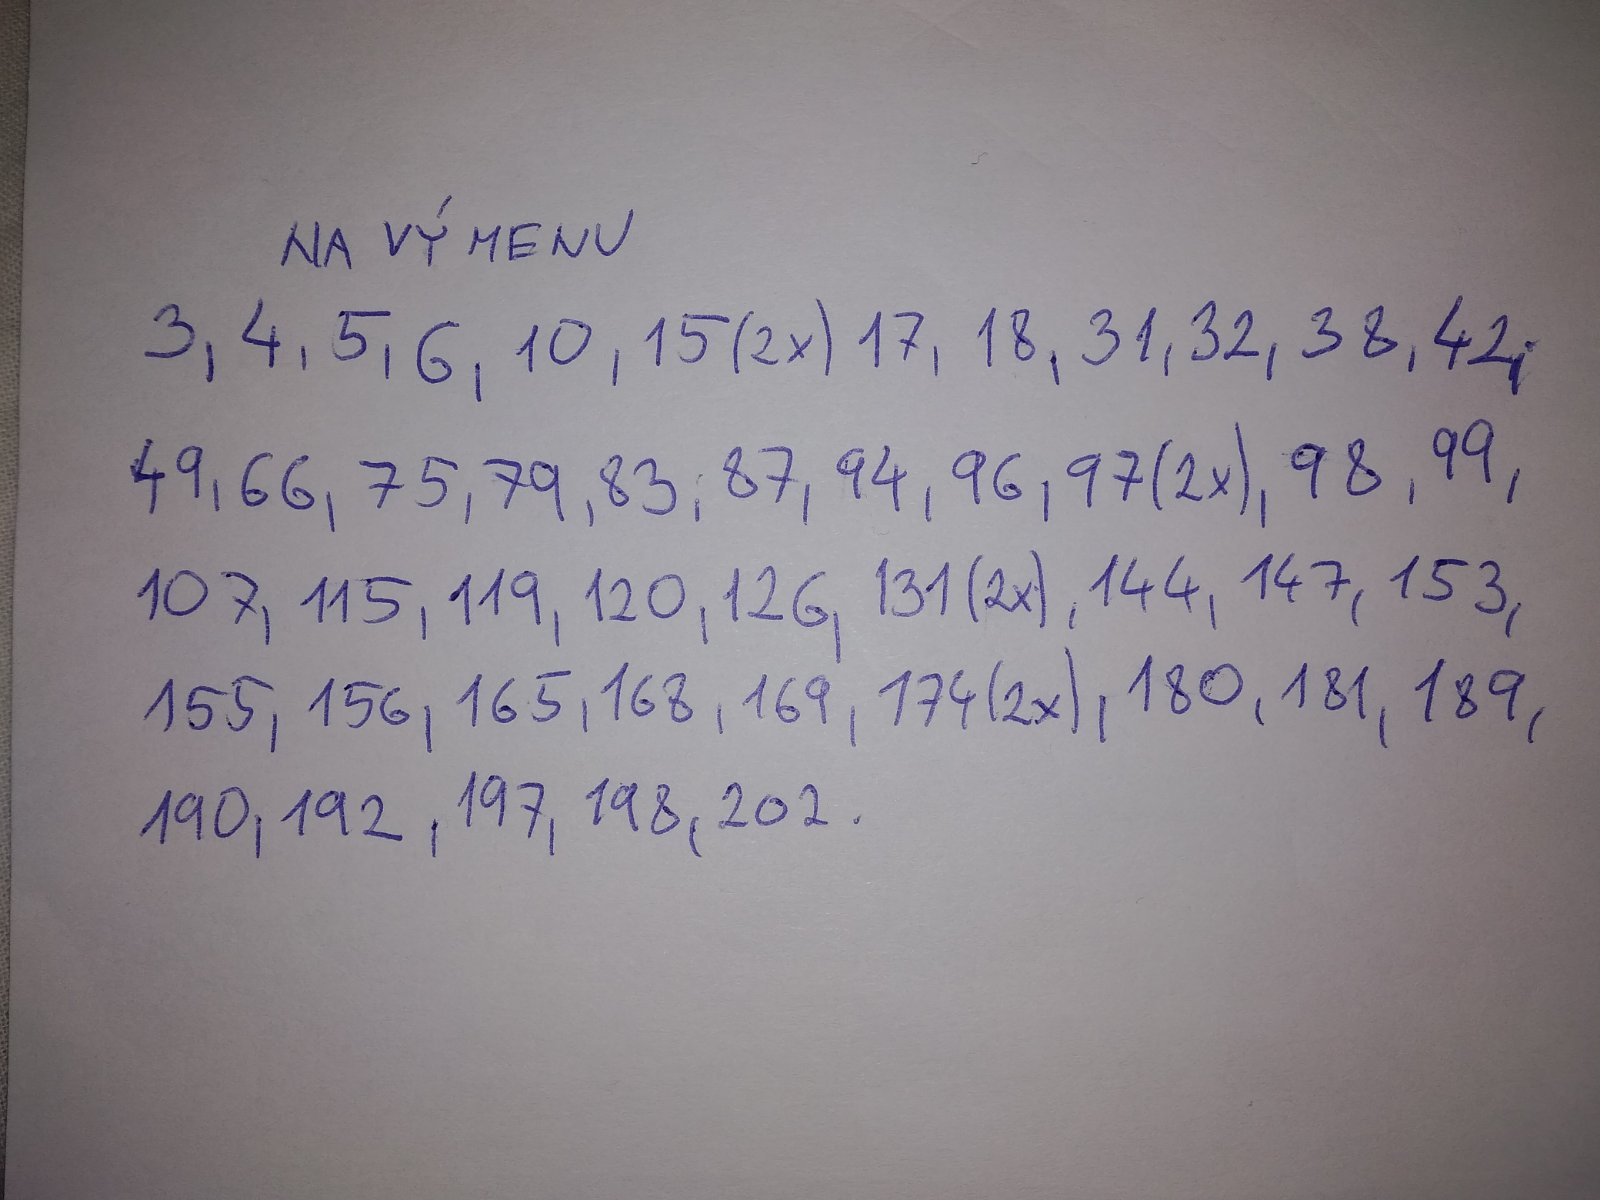 NA VÝMENU
3, 4, 5, 6, 10, 15(2x) 17, 18, 31, 32, 38, 42,
49, 66, 75, 79, 83, 87, 94, 96, 97(2x), 98, 99,
107, 115, 119, 120, 126, 131(2x), 144, 147, 153,
155, 156, 165, 168, 169, 174(2x), 180, 181, 189,
190, 192, 197, 198, 202.